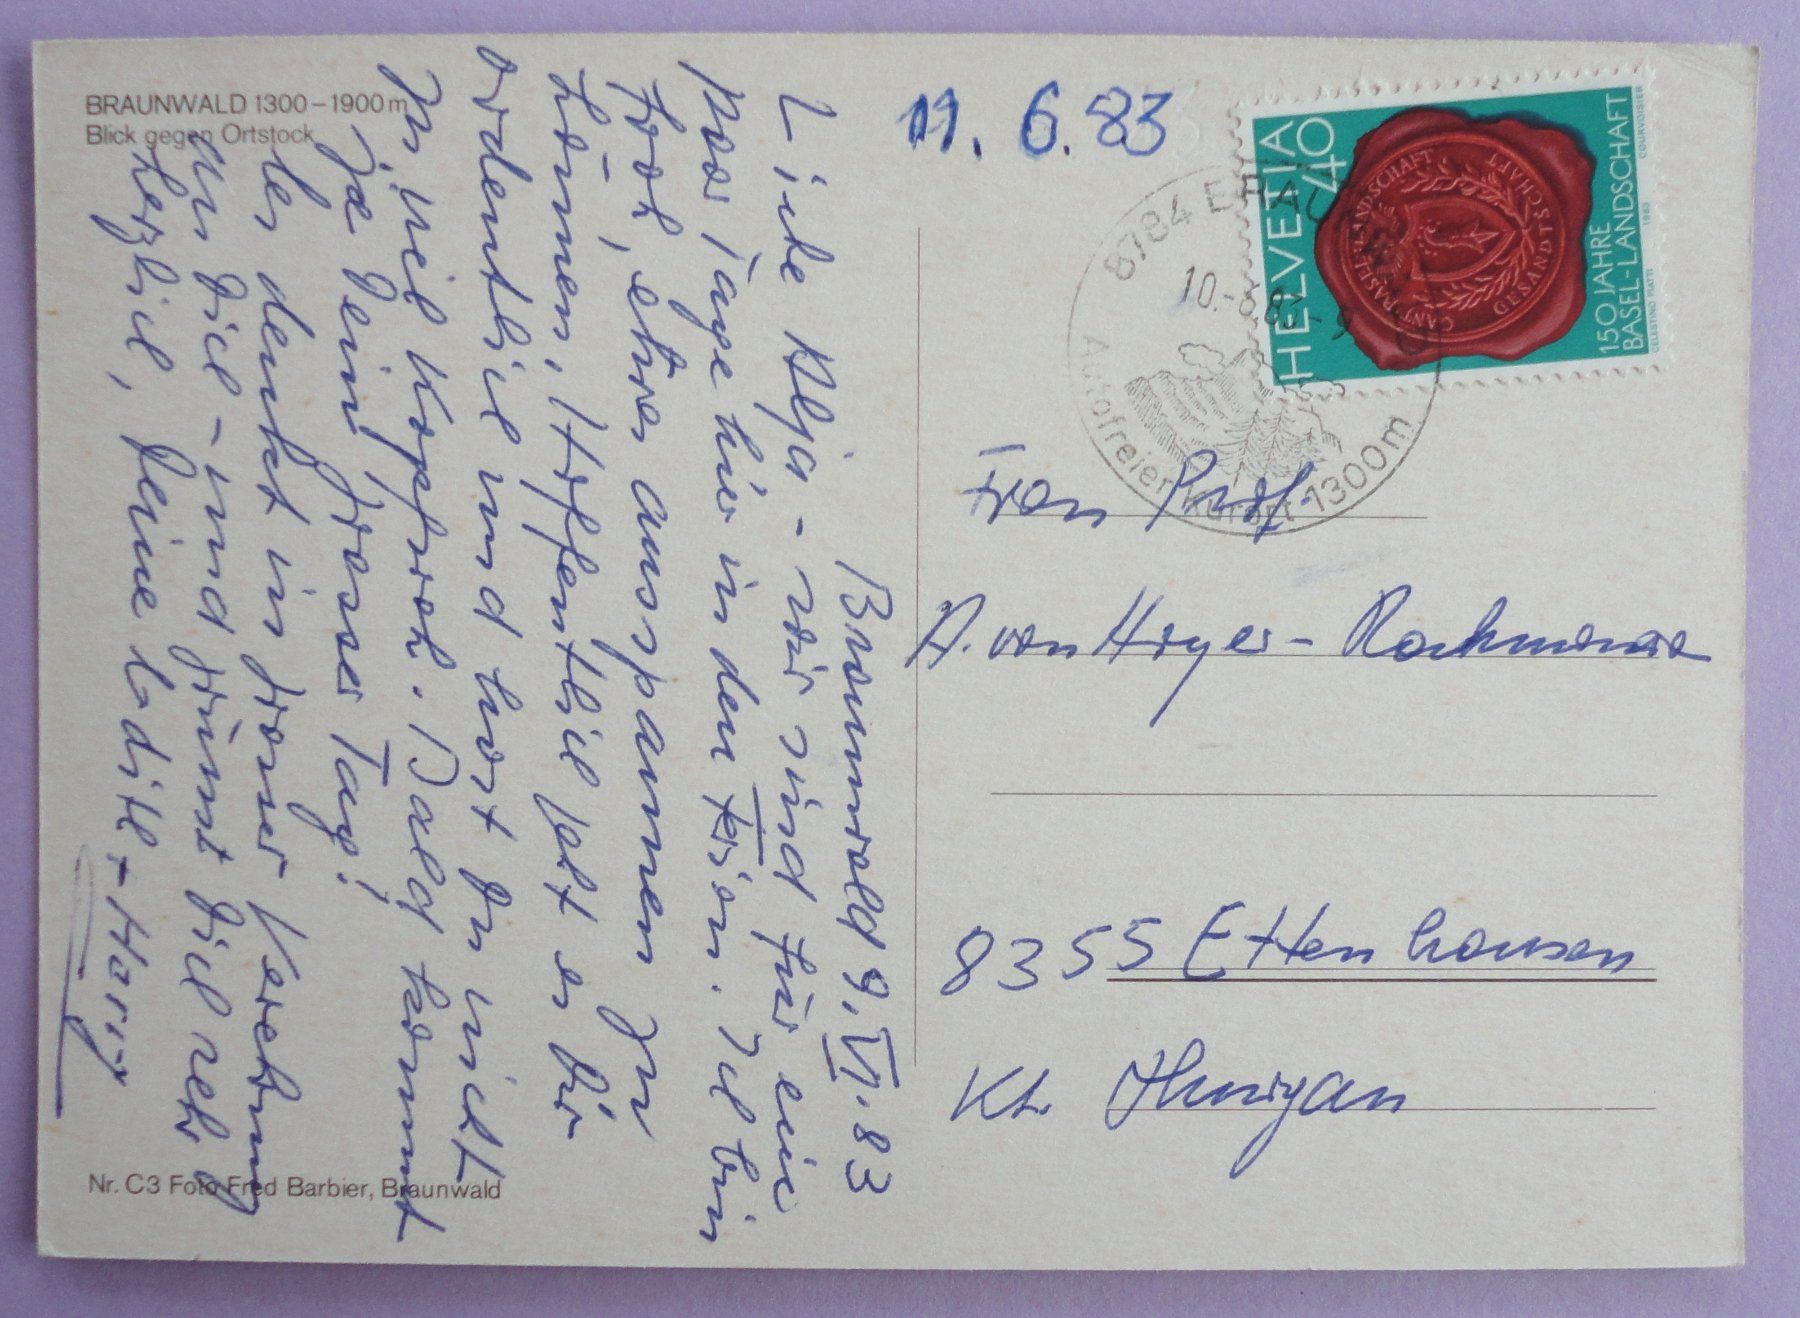 BRAUNWALD 1300 – 1900 m
Blick gegen Ortstock
Braunwald 9.VI.83
Liebe Alja – wir sind für ein
paar Tage hier in den Ferien. Ich bin
froh, etwas ausspannen zu
können. Hoffentlich geht es Dir
ordentlich und hast Du nicht
zu viel Kopfweh. Bald kommt
ja Dein grosser Tag!
Edith denkt in grosser Verehrung
an Dich – und grüsst Dich sehr
herzlich, Deine Edith + Harry
Nr. C3 Foto Fred Barbier, Braunwald
11. 6. 83
HELVETIA 40
150 JAHRE
BASEL-LANDSCHAFT
CELESTINO PIATTI 1983 COURVOISIER
8784 BRAUNWALD
10.-6.83-9
Autofreier Kurort 1300m
Frau Prof.
A. von Hoyer-Rachmanowa
8355 Ettenhausen
Kt. Thurgau